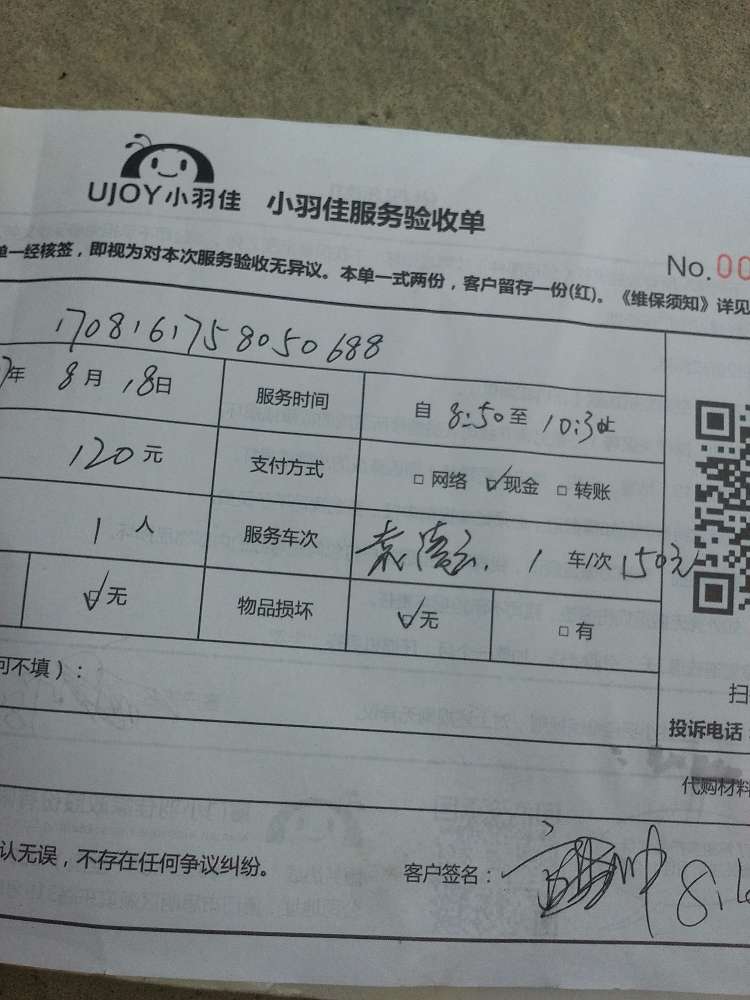 UJOY小羽佳 小羽佳服务验收单
No.00
单一经核签，即视为对本次服务验收无异议。本单一式两份，客户留存一份(红)。《维保须知》详见
1708161758050688
7年 8月 18日 服务时间 自 8:50至 10:30止
120元 支付方式 □ 网络 ☑现金 □ 转账
1 人 服务车次 1 车/次 150元
☑无 物品损坏 ☑无 □ 有
可不填）：
扫
投诉电话：
代购材料
认无误，不存在任何争议纠纷。 客户签名：